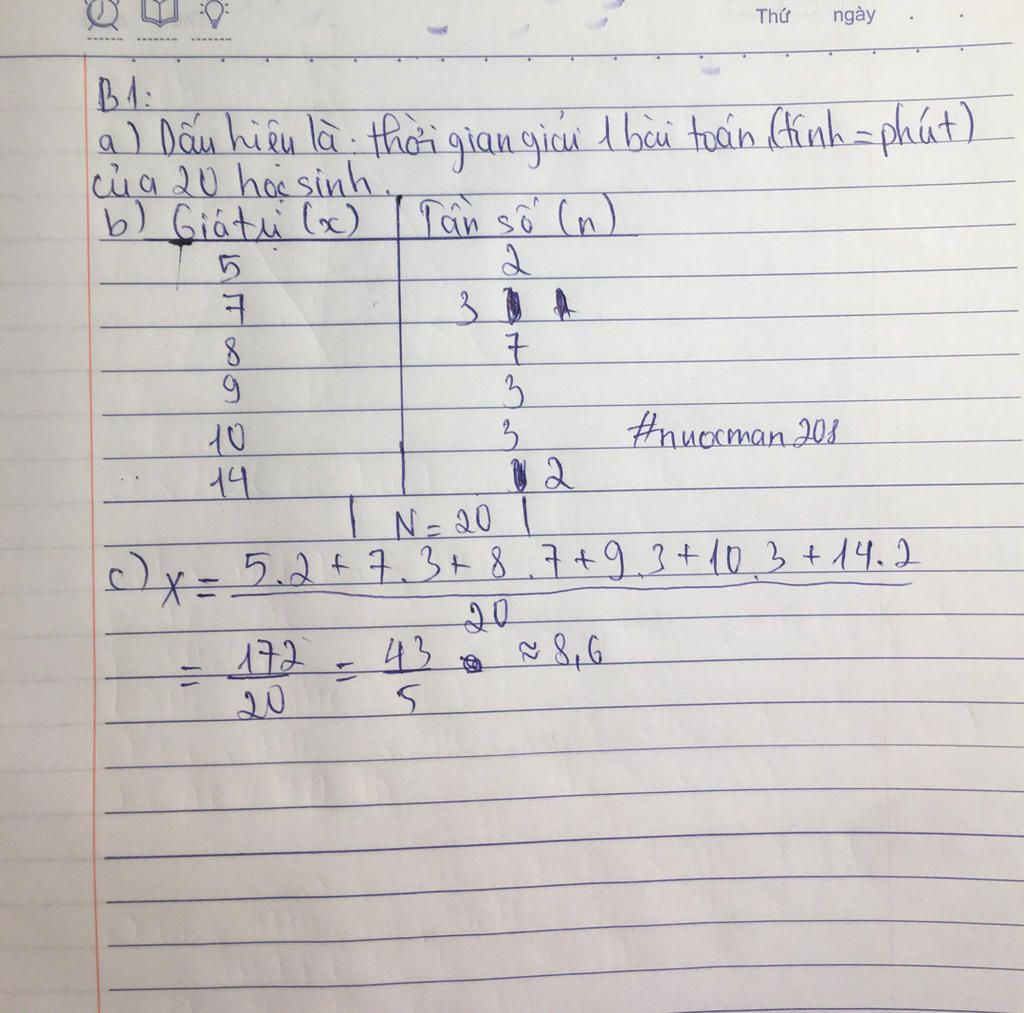 Thứ ngày
B1:
a) Dấu hiệu là: thời gian giải 1 bài toán (tính = phút)
của 20 học sinh.
b) Giá trị (x) Tần số (n)
5 2
7 3
8 7
9 3
10 3 #nuocman208
14 2
N = 20
c) X = 5.2 + 7.3 + 8.7 + 9.3 + 10.3 + 14.2
20
= 172 = 43 ≈ 8,6
20 5